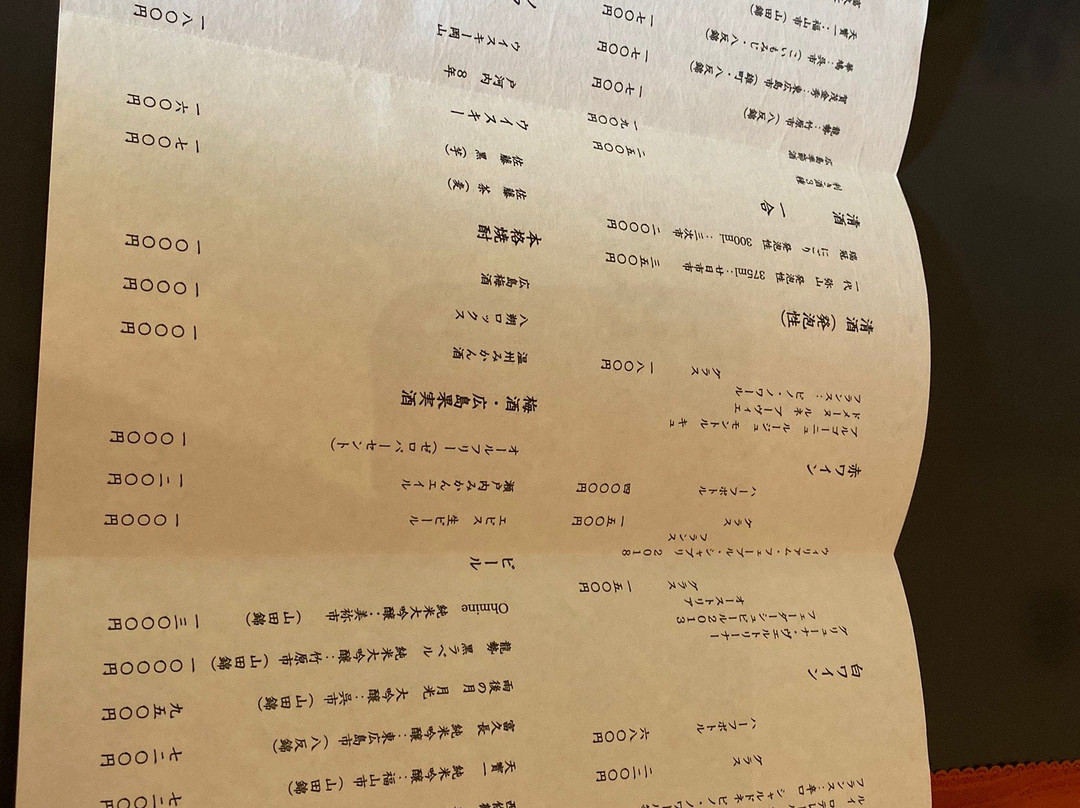 グラス 二二〇〇円
ハーフボトル 六八〇〇円
白ワイン
グリューナー・ヴェルトリーナー
フェーダーシュピール2013
オーストリア
グラス 一五〇〇円
ウィリアム・フェーブル・シャブリ 2018
フランス
グラス 一五〇〇円
ハーフボトル 四〇〇〇円
赤ワイン
ブルゴーニュ ルージュ モントル キュ
ドメーヌ ルネ ブーヴィエ
フランス：ピノ・ノワール
グラス 一八〇〇円
清酒（発泡性）
一代 弥山 発泡性 375㎖：廿日市市 三五〇〇円
瑞冠 にごり 発泡性 300㎖：三次市 二〇〇〇円
清酒 一合
利き酒3種 二五〇〇円
広島季節酒 一九〇〇円
龍勢：竹原市（八反錦） 一七〇〇円
賀茂金秀：東広島市（雄町・八反錦） 一七〇〇円
華鳩：呉市（こいもみじ・八反錦） 一七〇〇円
天寶一：福山市（山田錦）
天寶一 純米吟醸：福山市（山田錦） 七二〇〇円
富久長 純米吟醸：東広島市（八反錦） 七二〇〇円
雨後の月 月光 大吟醸：呉市（山田錦） 九五〇〇円
龍勢 黒ラベル 純米大吟醸：竹原市（山田錦） 一〇〇〇〇円
Ohmine 純米大吟醸：美祢市（山田錦） 一三〇〇〇円
ビール
エビス 生ビール 一〇〇〇円
瀬戸内みかんエイル 一二〇〇円
オールフリー（ゼロパーセント） 一〇〇〇円
梅酒・広島果実酒
温州みかん酒 一〇〇〇円
八朔ロックス 一〇〇〇円
広島梅酒 一〇〇〇円
本格焼酎
佐藤 茶（麦） 一七〇〇円
佐藤 黒（芋） 一六〇〇円
ウイスキー
戸河内 8年 一八〇〇円
ウイスキー岡山